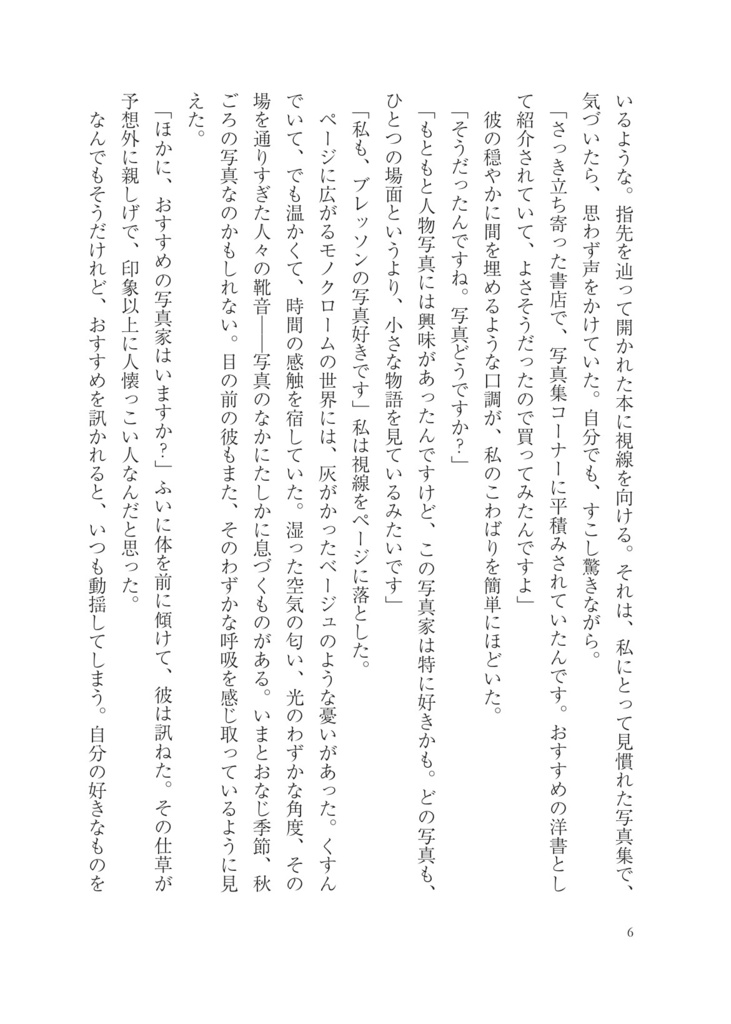 いるような。指先を辿って開かれた本に視線を向ける。それは、私にとって見慣れた写真集で、
気づいたら、思わず声をかけていた。自分でも、すこし驚きながら。
「さっき立ち寄った書店で、写真集コーナーに平積みされていたんです。おすすめの洋書とし
て紹介されていて、よさそうだったので買ってみたんですよ」
彼の穏やかに間を埋めるような口調が、私のこわばりを簡単にほどいた。
「そうだったんですね。写真どうですか？」
「もともと人物写真には興味があったんですけど、この写真家は特に好きかも。どの写真も、
ひとつの場面というより、小さな物語を見ているみたいです」
「私も、ブレッソンの写真好きです」私は視線をページに落とした。
ページに広がるモノクロームの世界には、灰がかったベージュのような憂いがあった。くすん
でいて、でも温かくて、時間の感触を宿していた。湿った空気の匂い、光のわずかな角度、その
場を通りすぎた人々の靴音――写真のなかにたしかに息づくものがある。いまとおなじ季節、秋
ごろの写真なのかもしれない。目の前の彼もまた、そのわずかな呼吸を感じ取っているように見
えた。
「ほかに、おすすめの写真家はいますか？」ふいに体を前に傾けて、彼は訊ねた。その仕草が
予想外に親しげで、印象以上に人懐っこい人なんだと思った。
なんでもそうだけれど、おすすめを訊かれると、いつも動揺してしまう。自分の好きなものを
6